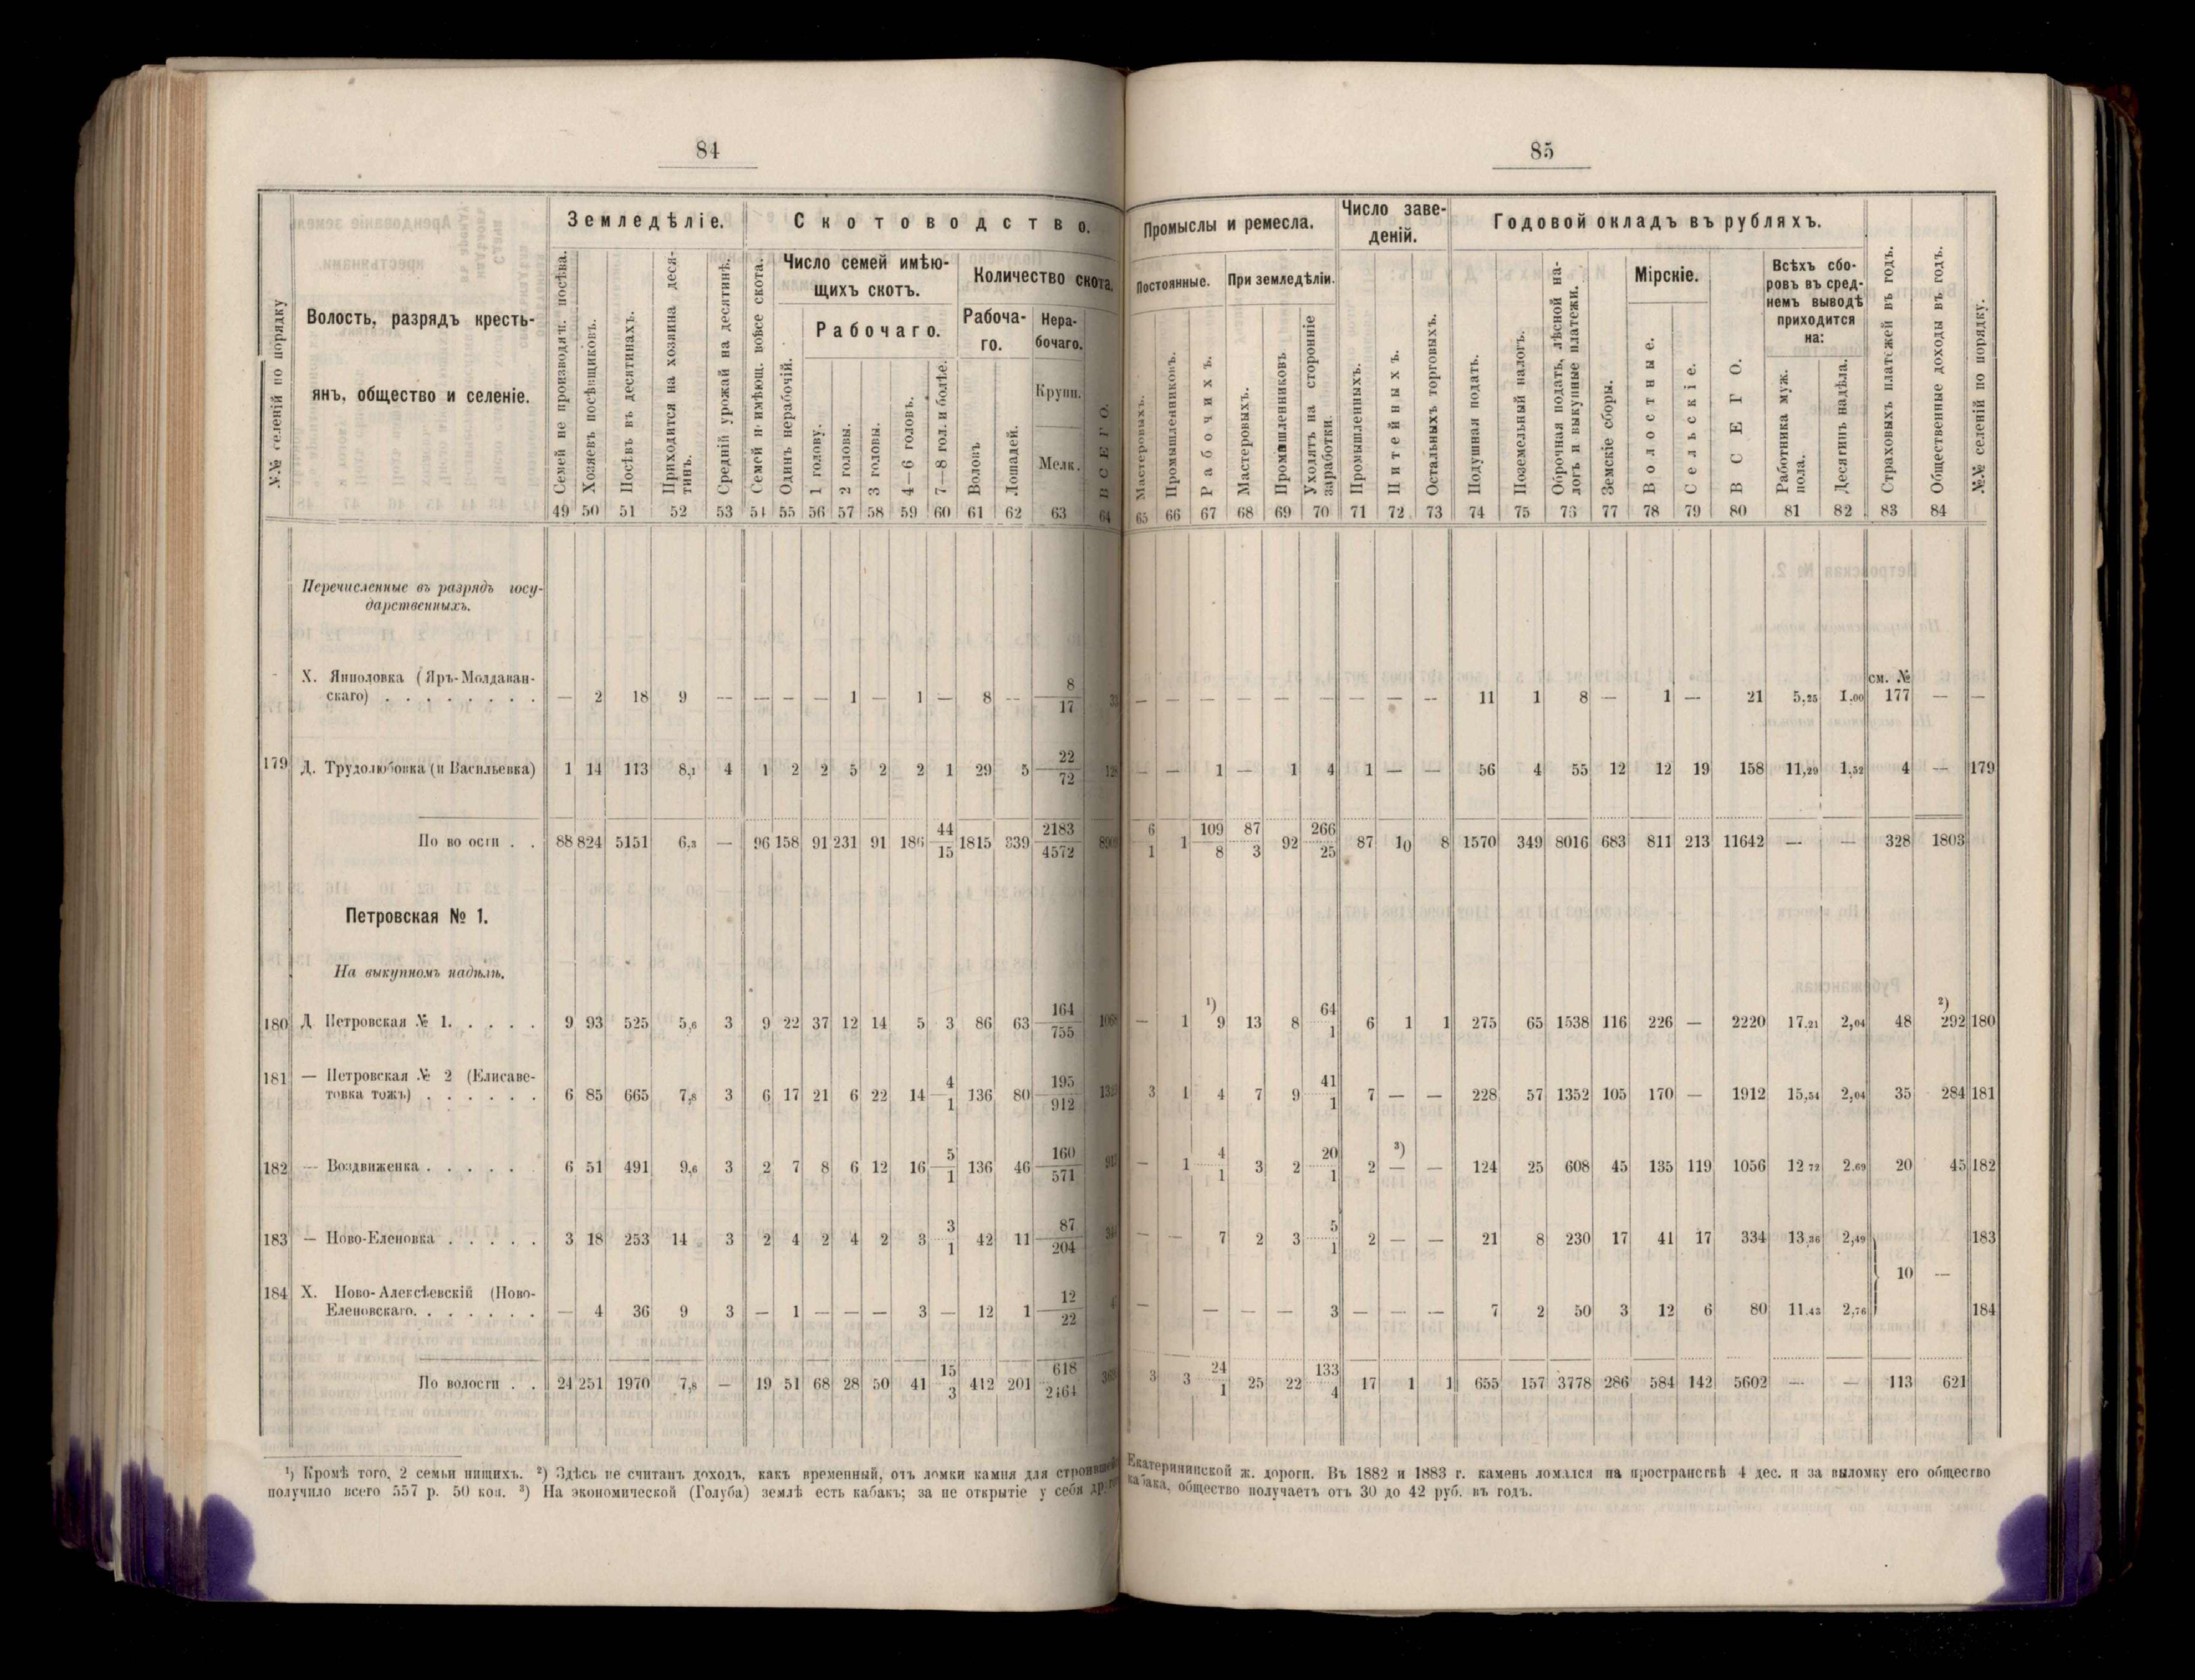 84
Земледѣліе.
Скотоводство.
№№ селеній по порядку
Волость, разрядъ кресть-
янъ, общество и селеніе.
Семей не производящ. посѣва.
Хозяевъ посѣвщиковъ.
Посѣвъ въ десятинахъ.
Приходится на хозяина деся-
тинъ.
Средній урожай на десятинѣ.
Семей не имѣющ. вовсе скота.
Число семей имѣю-
щихъ скотъ.
Количество скота.
Одинъ нерабочій.
Рабочаго.
1 голову.
2 головы.
3 головы.
4—6 головъ.
7—8 гол. и болѣе.
Рабоча-
го.
Воловъ
Лошадей.
Нера-
бочаго.
Крупн.
Мелк.
ВСЕГО.
49 50 51 52 53 54 55 56 57 58 59 60 61 62 63 64
Перечисленные въ разрядъ госу-
дарственныхъ.
Х. Янполовка (Яръ-Молдаван-
скаго) . . . . . . . . — 2 18 9 — — — — 1 — 1 — 8 — 8/17 33
179 Д. Трудолюбовка (и Васильевка) 1 14 113 8,1 4 1 2 2 5 2 2 1 29 5 22/72 128
По во ости . . 88 824 5151 6,3 — 96 158 91 231 91 186 44/15 1815 339 2183/4572
Петровская № 1.
На выкупномъ надѣлѣ.
180 Д Петровская № 1. . . . . 9 93 525 5,6 3 9 22 37 12 14 5 3 86 63 164/755 1068
181 — Петровская № 2 (Елисаве-
товка тожъ) . . . . . . 6 85 665 7,8 3 6 17 21 6 22 14 4/1 136 80 195/912 1323
182 — Воздвиженка . . . . . 6 51 491 9,6 3 2 7 8 6 12 16 5/1 136 46 160/571 913
183 — Ново-Еленовка . . . . . 3 18 253 14 3 2 4 2 4 2 3 3/1 42 11 87/204
184 Х. Ново-Алексѣевскій (Ново-
Еленовскаго. . . . . . . — 4 36 9 3 — 1 — — — 3 — 12 1 12/22
По волости . . 24 251 1970 7,8 — 19 51 68 28 50 41 15/3 412 201 618/2464
¹) Кромѣ того, 2 семьи нищихъ. ²) Здѣсь не считанъ доходъ, какъ временный, отъ ломки камня для строившейся
получило всего 557 р. 50 коп. ³) На экономической (Голуба) землѣ есть кабакъ; за не открытіе у себя
85
Промыслы и ремесла.
Число заве-
деній.
Годовой окладъ въ рубляхъ.
Постоянные.
При земледѣліи.
Мастеровыхъ.
Промышленниковъ.
Рабочихъ.
Мастеровыхъ.
Промышленниковъ
Уходятъ на сторонніе
заработки.
Промышленныхъ.
Питейныхъ.
Остальныхъ торговыхъ.
Подушная подать.
Поземельный налогъ.
Оброчная подать, лѣсной на-
логъ и выкупные платежи.
Земскіе сборы.
Мірскіе.
Волостные.
Сельскіе.
ВСЕГО.
Всѣхъ сбо-
ровъ въ сред-
немъ выводѣ
приходится
на:
Работника муж.
пола.
Десятинъ надѣла.
Страховыхъ платежей въ годъ.
Общественные доходы въ годъ.
№№ селеній по порядку.
65 66 67 68 69 70 71 72 73 74 75 76 77 78 79 80 81 82 83 84
— — — — — — — — — 11 1 8 — 1 — 21 5,25 1.00 см. № 177 — —
— — 1 — 1 4 1 — — 56 4 55 12 12 19 158 11,29 1,52 4 — 179
6/1 1 109/8 87/3 92 266/25 87 10 8 1570 349 8016 683 811 213 11642 — — 328 1803
— 1 ¹) 9 13 8 64/1 6 1 1 275 65 1538 116 226 — 2220 17.21 2,04 48 ²) 292 180
3 1 4 7 9 41/1 7 — — 228 57 1352 105 170 — 1912 15,54 2,04 35 284 181
— 1 4/1 3 2 20/1 2 ³) — — 124 25 608 45 135 119 1056 12 72 2.69 20 45 182
— — 7 2 3 5/1 2 — — 21 8 230 17 41 17 334 13,36 2,49 183
10 —
— — — — 3 — — — 7 2 50 3 12 6 80 11.43 2,76 184
3 3 24/1 25 22 133/4 17 1 1 655 157 3778 286 584 142 5602 — — 113 621
Екатерининской ж. дороги. Въ 1882 и 1883 г. камень ломался на пространствѣ 4 дес. и за выломку его общество
кабака, общество получаетъ отъ 30 до 42 руб. въ годъ.